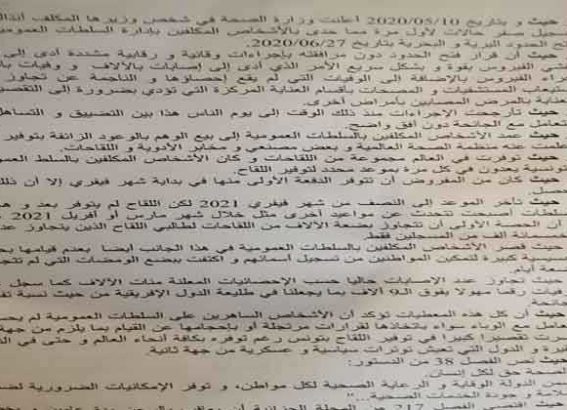 حيث و بتاريخ 2020/05/10 أعلنت وزارة الصحة في شخص وزيرها المكلف
تسجيل صفر حالات لأول مرة مما حدى بالأشخاص المكلفين بإدارة السلطات العمومية
فتح الحدود البرية و البحرية بتاريخ 2020/06/27.
حيث أن قرار فتح الحدود دون مرافقته بإجراءات وقائية و رقابية مشددة أدى إلى
الفيروس بقوة و بشكل سريع الأمر الذي أدى إلى إصابات بالآلاف و وفيات
جراء الفيروس بالإضافة إلى الوفيات التي لم يقع إحصاؤها و الناجمة عن تجاوز
استيعاب المستشفيات و المصحات بأقسام العناية المركزة التي تؤدي بضرورة إلى التقصير
العناية بالمرضى المصابين بأمراض أخرى.
حيث تأرجحت الإجراءات منذ ذلك الوقت إلى يوم الناس هذا بين التضييق و التساهل
التعامل مع الجائحة دون أفق واضح
حيث عمد الأشخاص المكلفين بالسلطات العمومية إلى بيع الوهم بالوعود الزائفة بتوفير
عنه منظمة الصحة العالمية و بعض مصنعي و مخابر الأدوية و اللقاحات.
حيث توفرت في العالم مجموعة من اللقاحات و كان الأشخاص المكلفين بالسلط
التونسية يعدون في كل مرة بموعد محدد لتوفير اللقاح.
حيث كان من المفروض أن تتوفر الدفعة الأولى منها في بداية شهر فيفري إلا أن ذلك
يحصل.
حيث تأخر الموعد إلى النصف من شهر فيفري 2021 لكن اللقاح لم يتوفر بعد و
السلطات أصبحت تتحدث عن مواعيد أخرى مثل خلال شهر مارس أو أفريل 2021
أن الحصة الأولى لن تتجاوز بضعة الآلاف من اللقاحات لطالبي اللقاح الذين يتجاوز
ألف من المسجلين فقط
حيث قصر الأشخاص المكلفين بالسلطات العمومية في هذا الجانب أيضا بعدم قيامها
تحسيسية كبيرة لتمكين المواطنين من تسجيل أسمائهم و اكتفت ببضع الومضات التي لم
بضعة أيام.
حيث تجاوز عدد الإصابات حاليا حسب الإحصائيات المعلنة مئات الآلاف كما سجل
وفيات رقما مهولا يفوق الـ9 آلاف بما يجعلنا في طليعة الدول الإفريقية من حيث نسبة
الجائحة.
حيث أن كل هذه المعطيات تؤكد أن الأشخاص الساهرين على السلطات العمومية لم
التعامل مع الوباء سواء باتخاذها لقرارات مرتجلة أو بإحجامها عن القيام بما يلزم من جهة
تقصيرا كبيرا في توفير اللقاح بتونس رغم توفره بكافة أنحاء العالم و حتى في
و الدول التي تعيش توترات سياسية و عسكرية من جهة ثانية.
حيث نص الفصل 38 من الدستور:
الصحة حق لكل إنسان.
تضمن الدولة الوقاية و الرعاية الصحية لكل مواطن، و توفر الإمكانيات الضرورية
و جودة الخدمات الصحية..."
حيث اقتضى الفصل